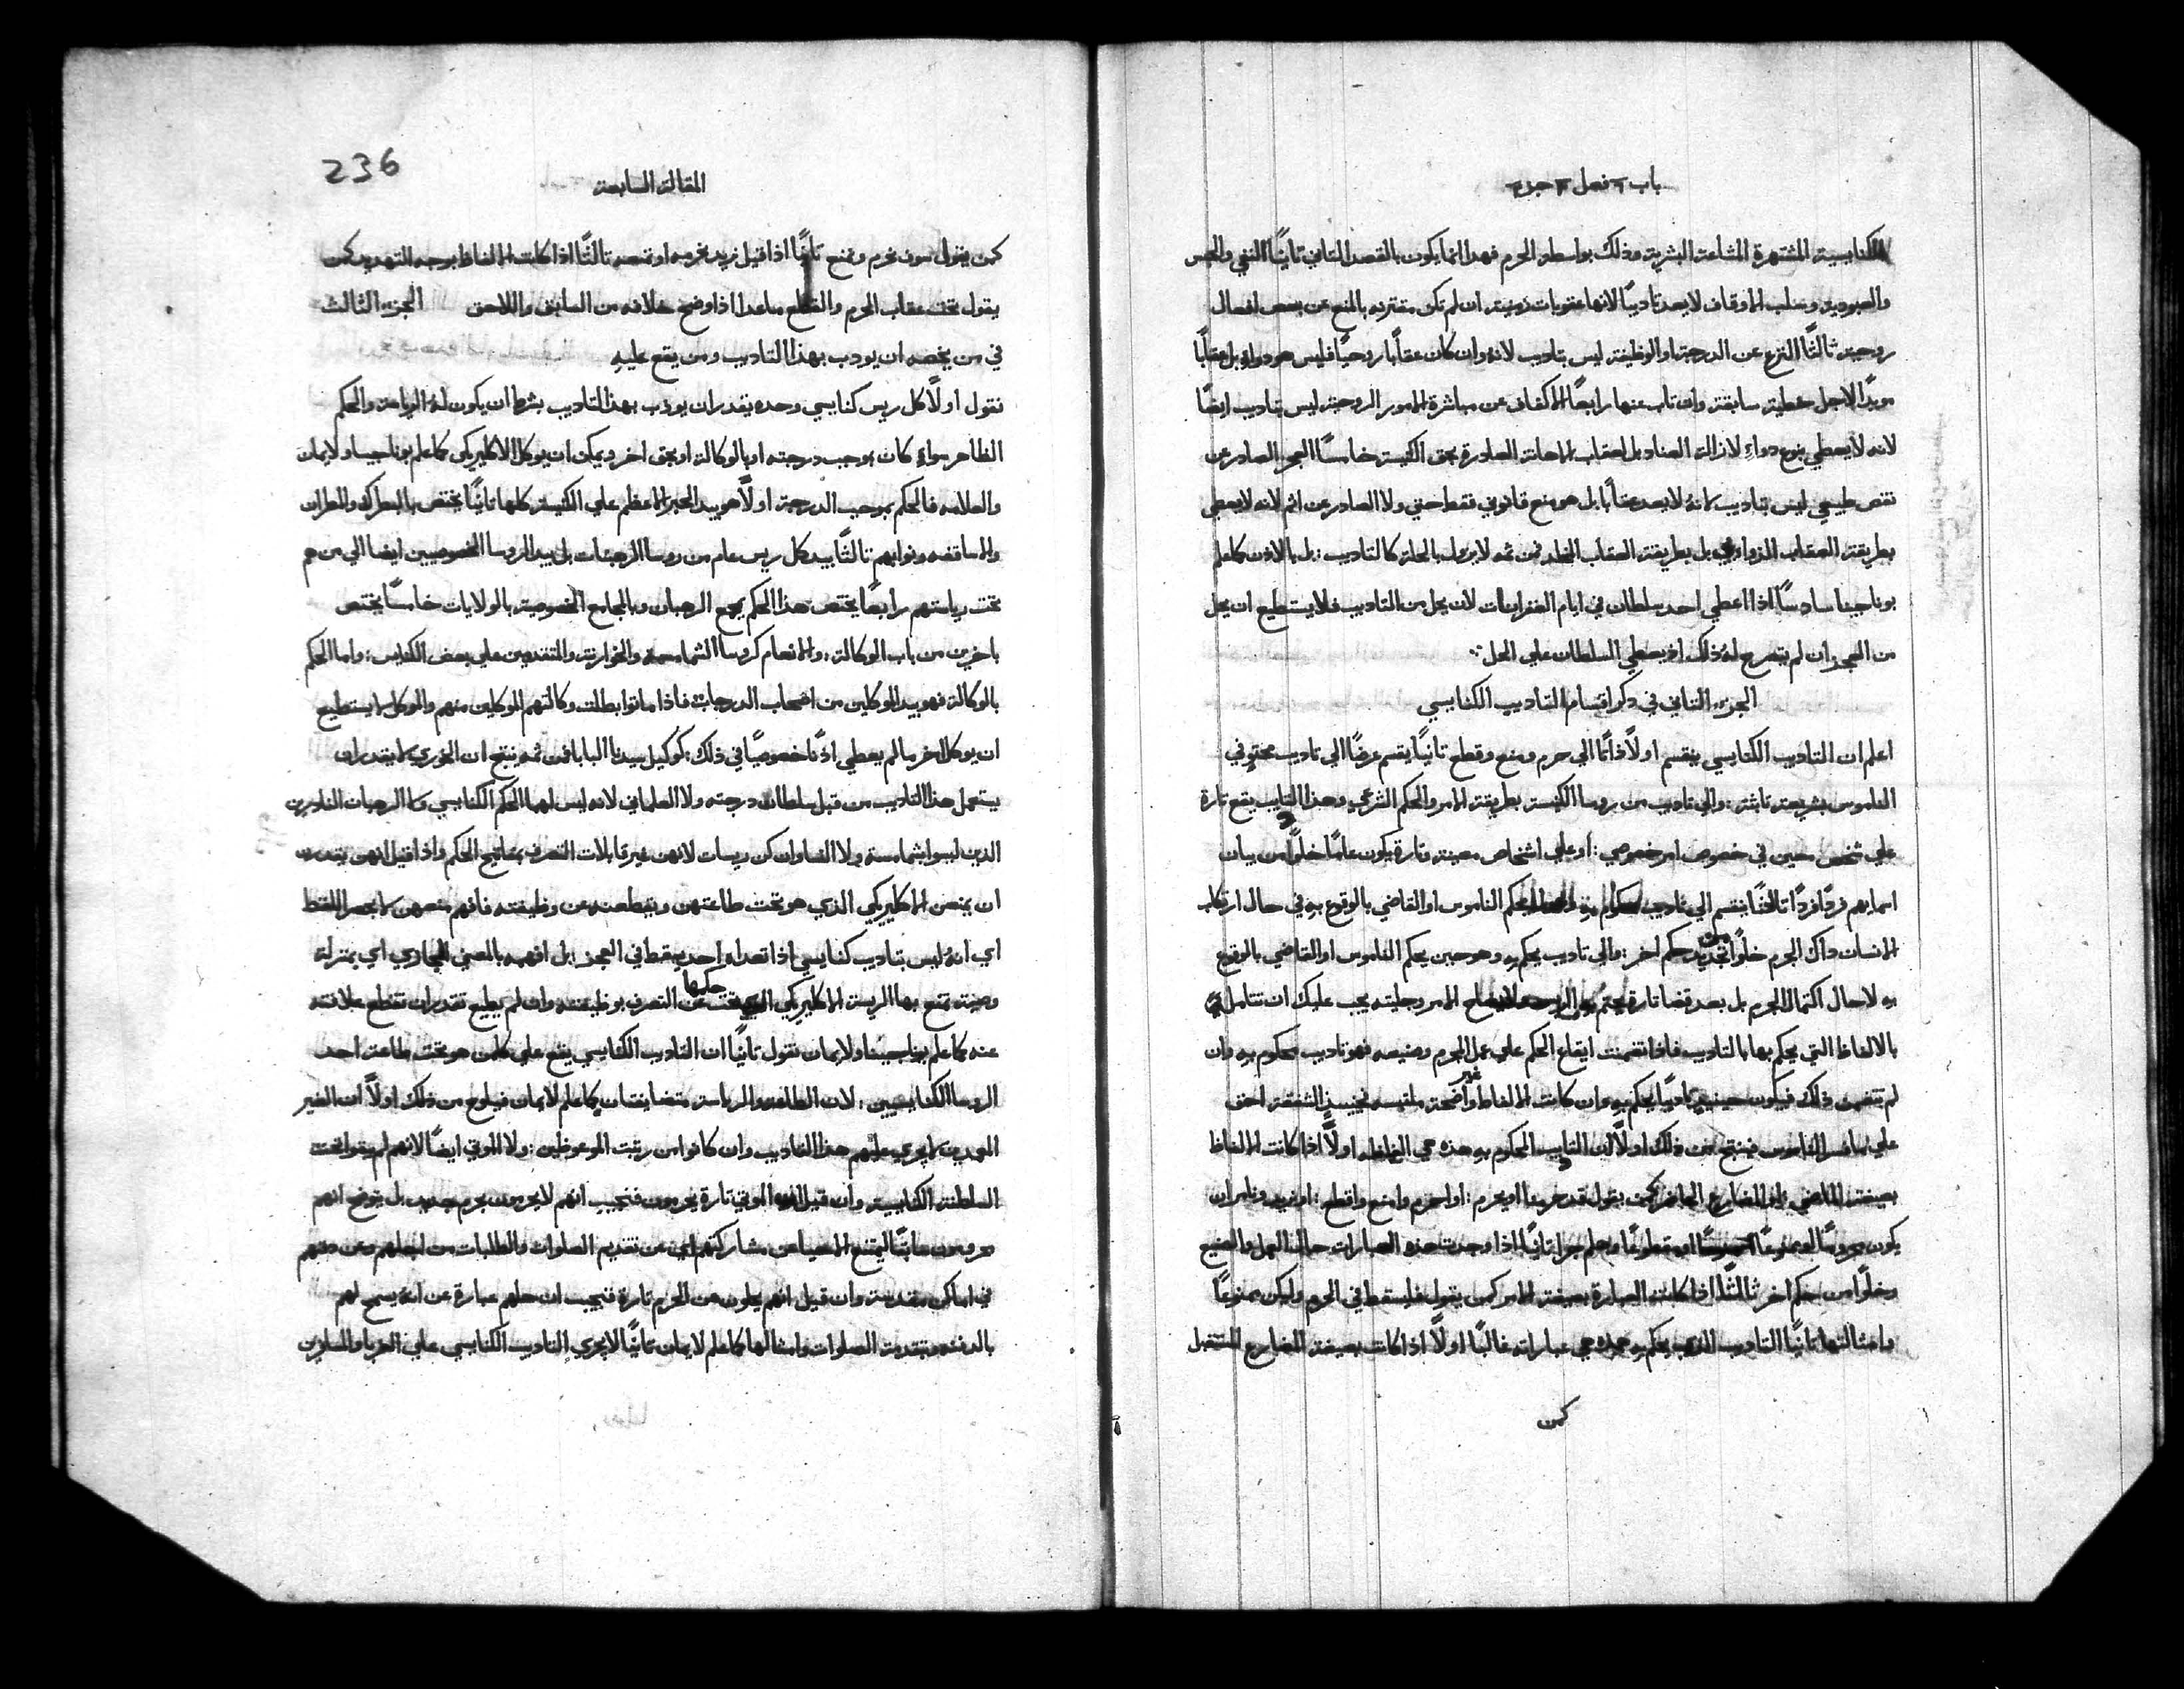 باب فصل جزء
الكنايسية المشتهرة المشاعة البشرية وذلك بواسطة الحرم فهدا انما يكون بالقصد التاني تانيًا النفي والحبس
والعبودية وسلب الاوقاف لا يعد تاديبًا لانها عقوبات زمنية ان لم تكن مقترنه بالمنع عن بعض افعال
روحية ثالثًا النزع عن الدرجة والوظيفة ليس بتاديب لانه وان كان عقابا روحيًا فليس هو دواء بل عقابًا
موبدًا لاجل خطية سابقة وان تاب عنها رابعًا الاكفاف عن مباشرة الامور الروحية ليس بتاديب ايضًا
لانه لا يعطي بنوع دواءٍ لازالة العناد بل لعقاب الاهانة الصادرة بحق الكنيسة خامسًا العجز الصادر عن
نقص طبيعي ليس بتاديب لانهُ لا يعد عقابًا بل هو منع قانوني فقط حتي ولا الصادر عن اثم لانه لا يعطي
بطريقة العقاب الدواوي بل بطريقة العقاب الخالد فمن ثمه لا يزول بالحلة كالتاديب : بل بالاذن كما علم
بوناجينا سادسًا اذا اعطي احد سلطان في ايام الغفرانات لان يحل من التاديب فلا يستطيع ان يحل
من العجز ان لم يتصرح لهُ ذلك اذ يعطي السلطان علي الحل
الجزء التاني في ذكر اقسام التاديب الكنايسي
اعلم ان التاديب الكنايسي ينقسم اولًا ذاتًا الي حرم ومنع وقطع تانيًا يقسم عرضًا الي تاديب محتوٍ في
الناموس بشريعة ثابتة : والي تاديب من روسا الكنيسة بطريقة الامر والحكم الشرعي وهذا التاديب يقع تارة
علي شخص معين في خصوص امر خصوصي : او علي اشخاص معينة وتارة يكون عامًا خلوًا من بيان
اسمايهم فردًا فردًا ثالثًا ينقسم الي تاديب محكوم به يحكم الناموس او القاضي بالوقوع به في حال ارتكاب
الانسان ذاك الجرم خلوًا من تجديد حكم اخر : والي تاديب يحكم به وهو حين يحكم الناموس او القاضي بالوقوع
به لا حال اكتمال الجرم بل بعد قضا تارة الامر وجليته يجب عليك ان تتامل
بالالفاظ التي يحكم بها بالتاديب فاذا تضمنت ايقاع الحكم علي عمل الجرم وصنيعه فهو تاديب محكوم به وان
لم تتضمن ذلك فيكون حينيذٍ تاديبًا يحكم به وان كانت الالفاظ غير واضحة ملتبسه فحينيذٍ الشفقة احق
علي الناموس فينتج من ذلك اولًا ان التاديب المحكوم به هذه هي الفاظه اولًا اذا كانت الالفاظ
بصيغة الماضي او المضارع الحاضر كمن يقول قد حرمنا او يحرم : او احرم وامنع واقطع : او نريد ونامر ان
يكون محرومًا او ممنوعًا او مقطوعًا وهلم جرا تانيًا اذا وجدت هذه العبارات حال العمل والصنيع
وخلوًا من حكم اخر ثالثًا اذا كانت العبارة بصيغة الامر كمن يقول فليسقط في الحرم وليكن ممنوعًا
وامثالها تانيًا التاديب الذي يحكم به هذه هي عباراته غالبًا اولًا اذا كانت بصيغة المضارع المستقبل
كمن
236
المقالة السابعة
كمن يقول سوف نحرم ونمنع تانيًا اذا قيل نريد نحرمه او تمنعه ثالثًا اذا كانت الالفاظ بوجه التهديد كمن
يقول تحت عقاب الحرم والقطع ما عدا اذا وضح خلافه من السابق واللاحق الجزء الثالث
في من يخصه ان يودب بهذا التاديب ومن يقع عليه
نقول اولًا كل ريس كنايسي وحده يقدر ان يودب بهذا التاديب بشرط ان يكون لهُ الرياسة والحكم
الظاهر سواءٍ كان بموجب درجته او بالوكالة او بحق اخر ويمكن ان يوكل الاكليريكي كما علم بوناجينا ولايمان
والعلامه فالحكم بموجب الدرجة اولًا هو بيد الحبر الاعظم علي الكنيسة كلها تانيًا يختص بالبطرك والمطران
والاساقفه ونوابهم ثالثًا بيد كل ريس عام من روسا الرهبنات بل بيد الروسا الخصوصيين ايضا الي من هم
تحت رياستهم رابعًا يختص هذا الحكم بمجمع الرهبان وبالمجامع الخصوصية بالولايات خامسًا يختص
باخرين من باب الوكالة : والانعام كروسا الشمامسة والخوارنة والمتقدمين علي بعض الكنايس : واما الحكم
بالوكالة فهو بيد الموكلين من اصحاب الدرجات فاذا ماتوا بطلت وكالتهم الموكلين منهم والموكل لا يستطيع
ان يوكل اخر ما لم يعطي اذنًا خصوصيًا في ذلك : كوكيل سيدنا البابا فمن ثمه ينتج ان الخوري لا يقدر ان
يستعمل هذا التاديب من قبل سلطان درجته ولا العلماني لانه ليس لهما الحكم الكنايسي ولا الرهبان الناذرين
الذين ليسوا شمامسة ولا النسا وان كن ريسات لانهن غير قابلات التصرف بمفاتيح الحكم واذا قيل انهن يقدرن
ان يمنعن الاكليريكي الذي هو تحت طاعتهن ويقطعنه عن وظيفته فافهم منعهن لا بحصر اللفظ
اي انهُ ليس بتاديب كنايسي اذا تعداه احد يسقط في العجز : بل افهمه بالمعني المجازي اي بمنزلة
وصية تمنع بها الريسة الاكليريكي الذي تحت حكمها عن التصرف بوظيفته وان لم يطيع تقدر ان تقطع علاقته
عنه كما علم بوناجينا ولايمان نقول تانيًا ان التاديب الكنايسي يقع علي كلمن هو تحت طاعة احد
الروسا الكنايسيين : لان الطاعة والرياسة متضايفتان كما علم لايمان فيلوح من ذلك اولًا ان الغير
المعمدين لا يجري عليهم هذا التاديب وان كانوا من رتبة الموعوظين : ولا الموتي ايضًا لانهم لم يبقوا تحت
السلطنة الكنايسية وان قيل ان الموتي تارة يحرمون فنجيب انهم لا يحرمون بحرم جديد بل يتوضح انهم
محرومون سابقًا ليمتنع الاحيا عن مشاركتهم اي عن تقديم الصلوات والطلبات من اجلهم وعن دفنهم
في اماكن مقدسة وان قيل انهم يحلون من الحرم تارة فنجيب ان حلهم عبارة عن انهُ يسمح لهم
بالدفنه وبتقدمة الصلوات وامثالها كما علم لايمان تانيًا لا يجري التاديب الكنايسي علي الغربا والمسافرين